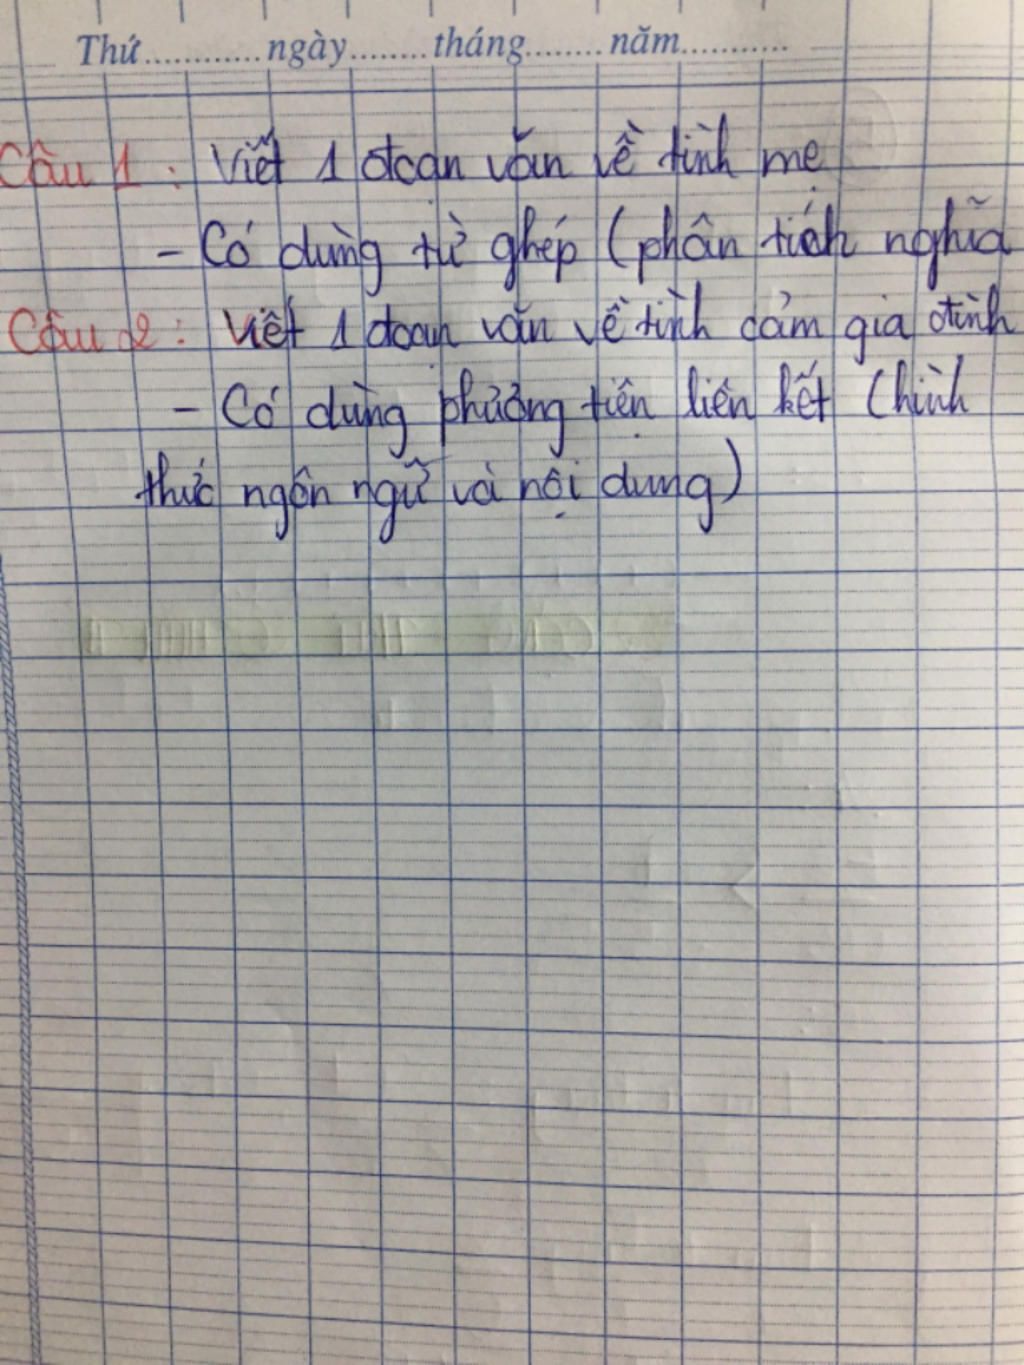 Thứ............ngày........tháng........năm...........
Câu 1 : Viết 1 đoạn văn về tình mẹ
- Có dùng từ ghép (phân tích nghĩa
Câu 2 : Viết 1 đoạn văn về tình cảm gia đình
- Có dùng phương tiện liên kết (hình
thức ngôn ngữ và nội dung)